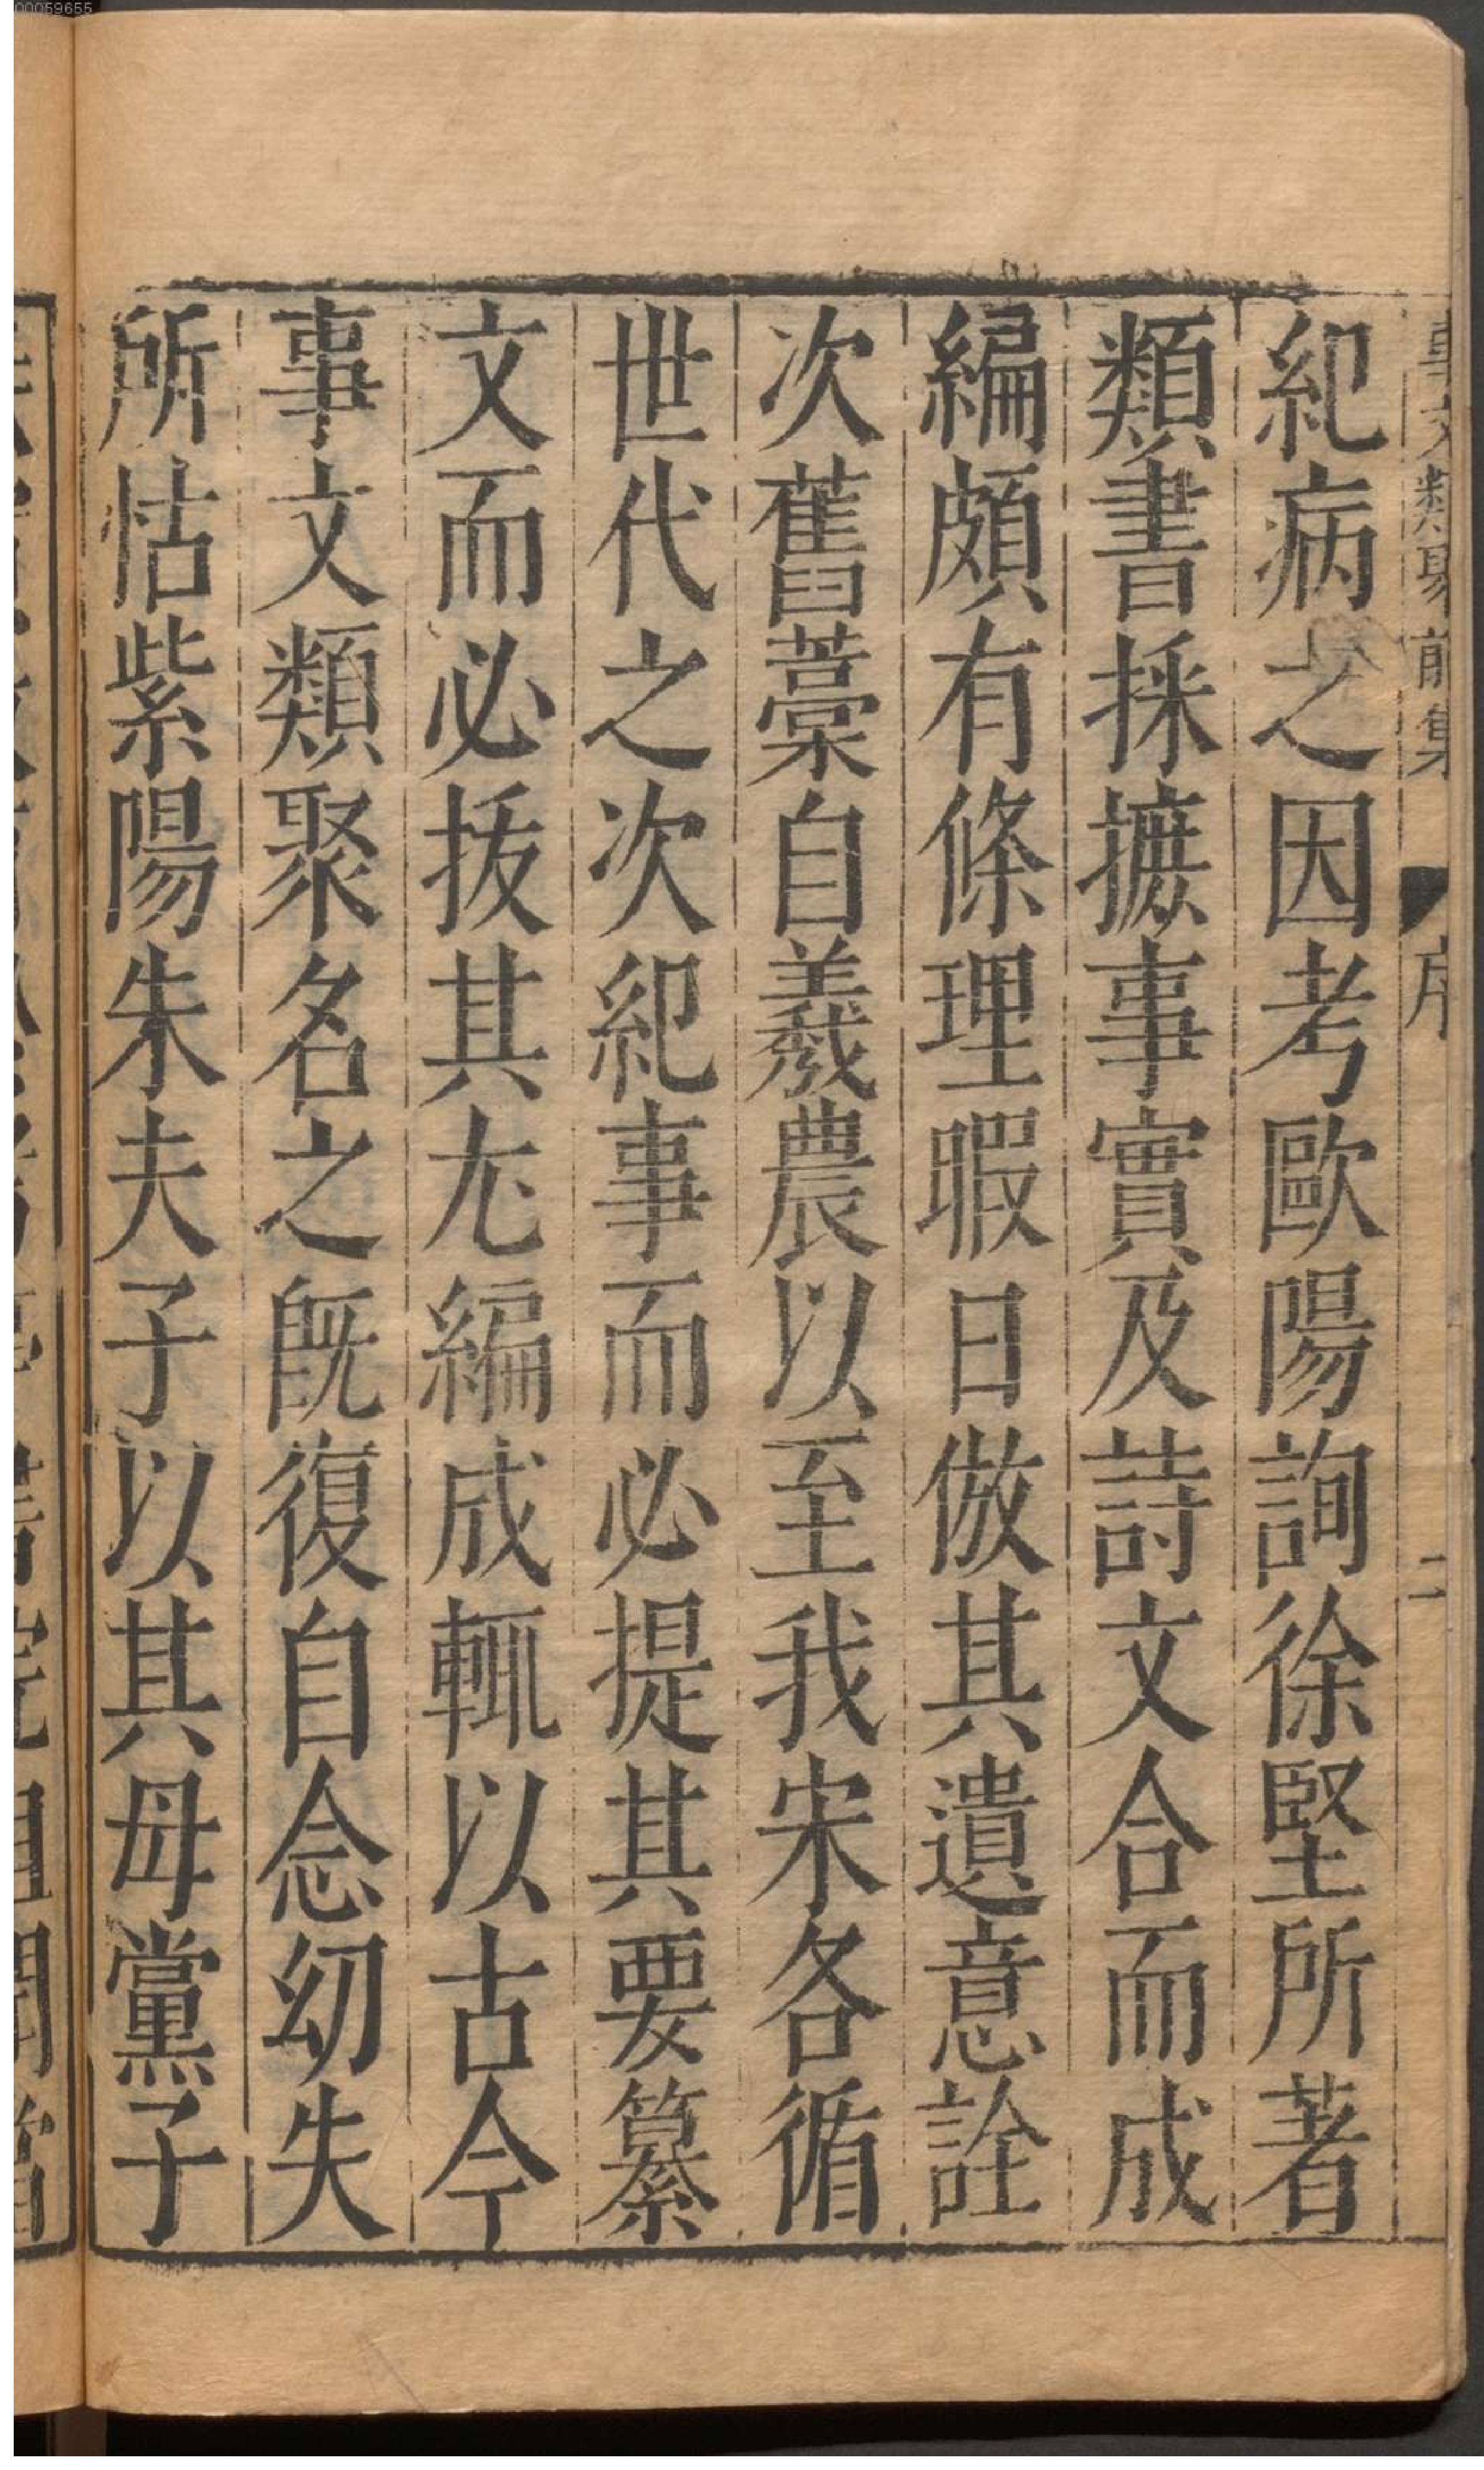 00059655
事文類聚前集 序 二
紀病之因考歐陽詢徐堅所著
類書採摭事實及詩文合而成
編頗有條理暇日倣其遺意詮
次舊藁自羲農以至我宋各循
世代之次紀事而必提其要纂
文而必拔其尤編成輒以古今
事文類聚名之旣復自念幼失
所怙紫陽朱夫子以其母黨子